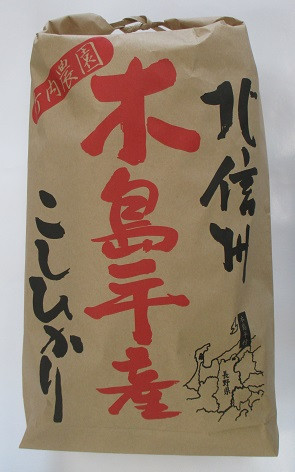 北信州
木島平産
こしひかり
庄内農園
長野県